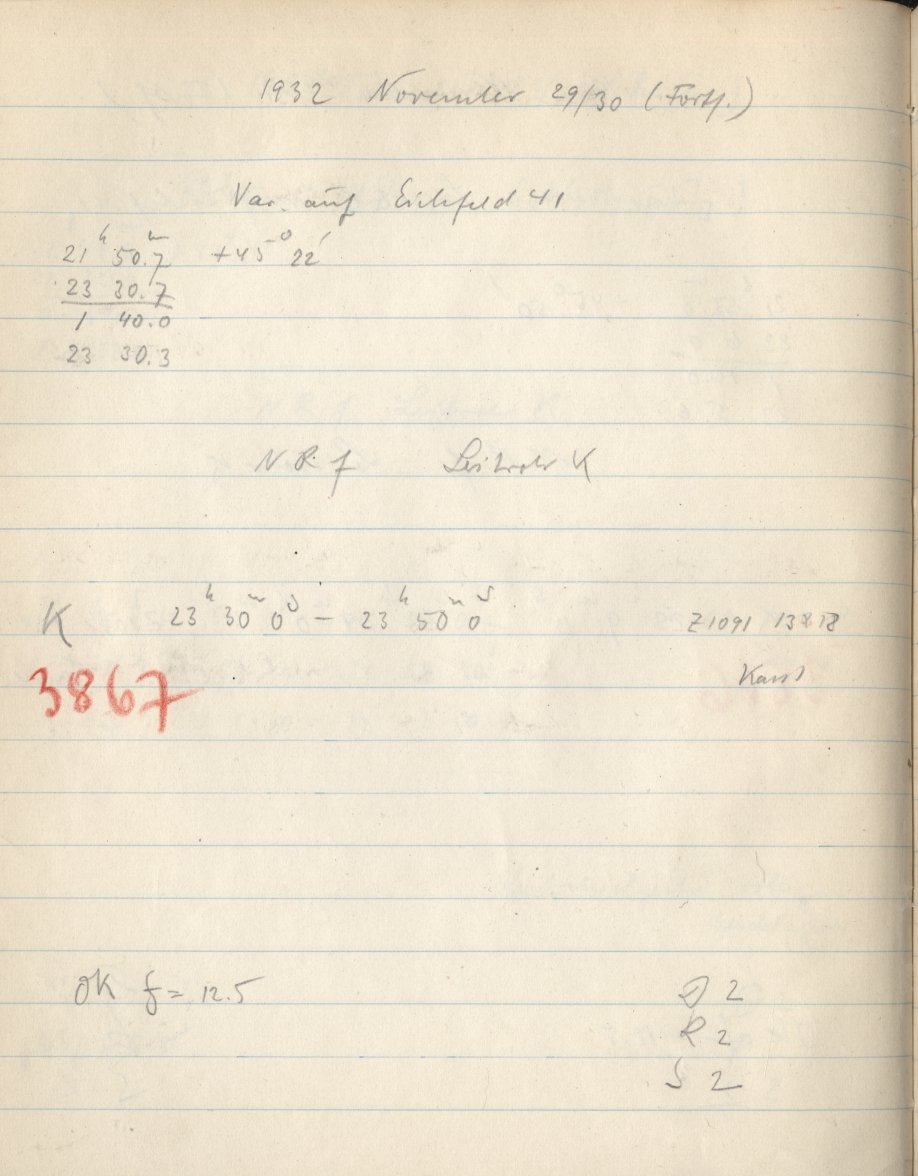 1932 November 29/30 (Forts.)
Var. auf Eichfeld 41
21h 50.m7 +45° 22'
23 30.7
1 40.0
23 30.3
N R f Leitrohr K
K 23h 30m 0s – 23h 50m 0s Z1091 1388
3867
OK f = 12.5
D 2
R 2
S 2